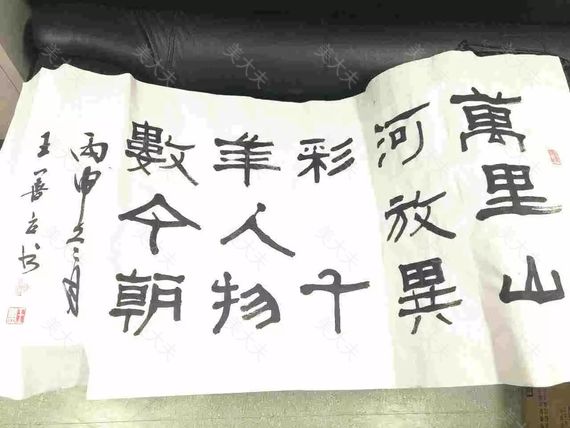 萬里山
河放異
彩千
年人物
數今朝
丙申冬月
王善书
美大夫